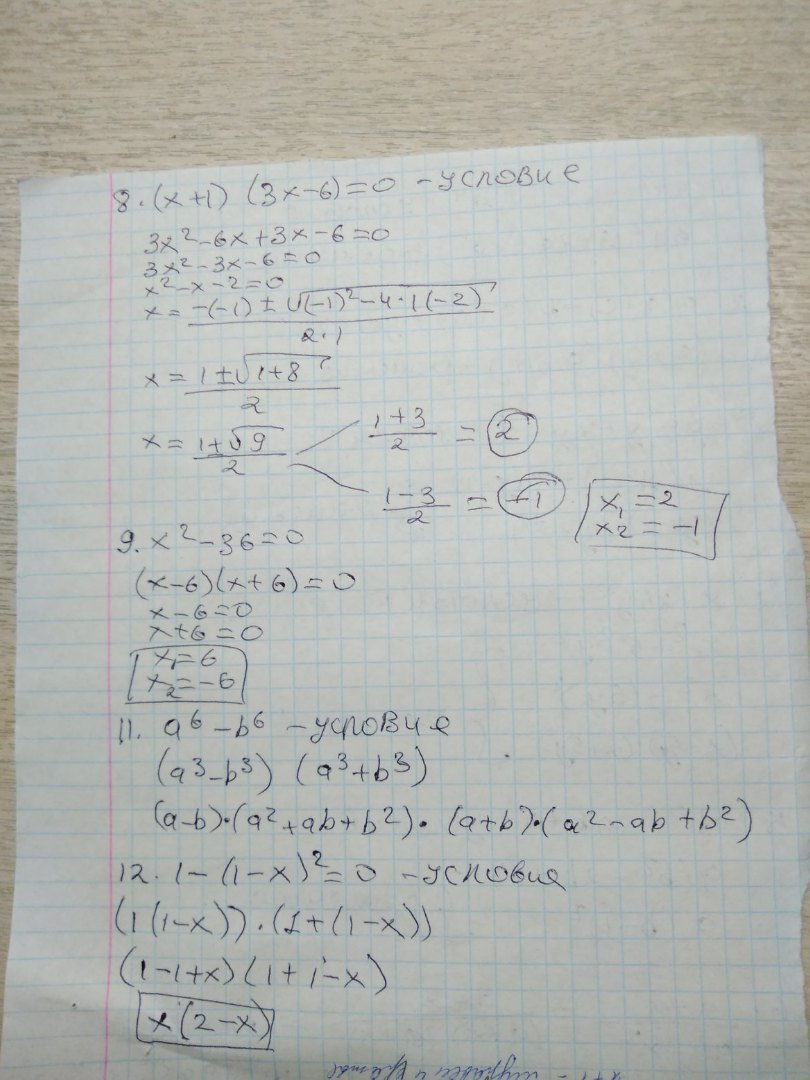 8. (x+1) (3x-6)=0 - условие
3x²-6x+3x-6=0
3x²-3x-6=0
x²-x-2=0
x= -(-1) ± √(-1)²-4·1(-2)
2·1
x = 1±√1+8
2
x = 1+√9
2
1+3
2
= 2
1-3
2
= -1
x₁=2
x₂=-1
9. x²-36=0
(x-6)(x+6)=0
x-6=0
x+6=0
x₁=6
x₂=-6
11. a⁶-b⁶ - условие
(a³-b³) (a³+b³)
(a-b)·(a²+ab+b²)· (a+b)·(a²-ab+b²)
12. 1-(1-x)²=0 - условия
(1(1-x))·(1+(1-x))
(1-1+x)(1+1-x)
x(2-x)